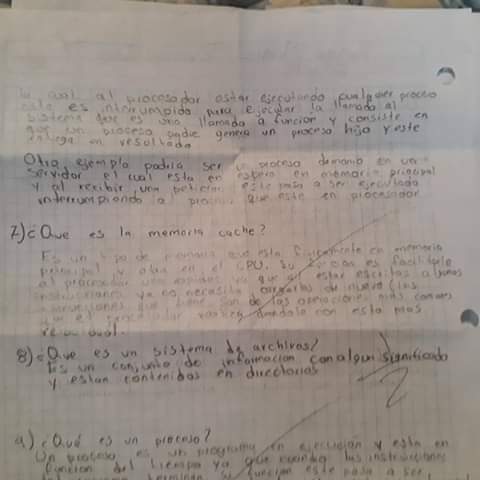 la cual al procesador estar ejecutando cualquier proceso
este es interrumpido para ejecutar la llamada al
sistema que es una llamada a función y consiste en
que un proceso padre genera un proceso hijo y este
entrega un resultado
Otro ejemplo podría ser un proceso demonio en un
servidor el cual esta en espera en memoria principal
y al recibir una petición este pasa a ser ejecutado
interrumpiendo al proceso que este en procesador
7) ¿Que es la memoria cache?
Es un tipo de memoria que esta físicamente en memoria
principal y otra en el CPU. Su función es facilitarle
al procesador ya que al estar escritas algunas
instrucciones ya no necesita cargarlas de nuevo (las
instrucciones que tiene son de las operaciones más comunes
que el procesador realiza con esta mas
8) ¿Que es un sistema de archivos?
Es un conjunto de informacion con algun significado
y estan contenidos en directorios
9) ¿Qué es un proceso?
Un proceso es un programa en ejecución y esta en
función del tiempo ya que cuando las instrucciones
terminan su función este pasa a ser